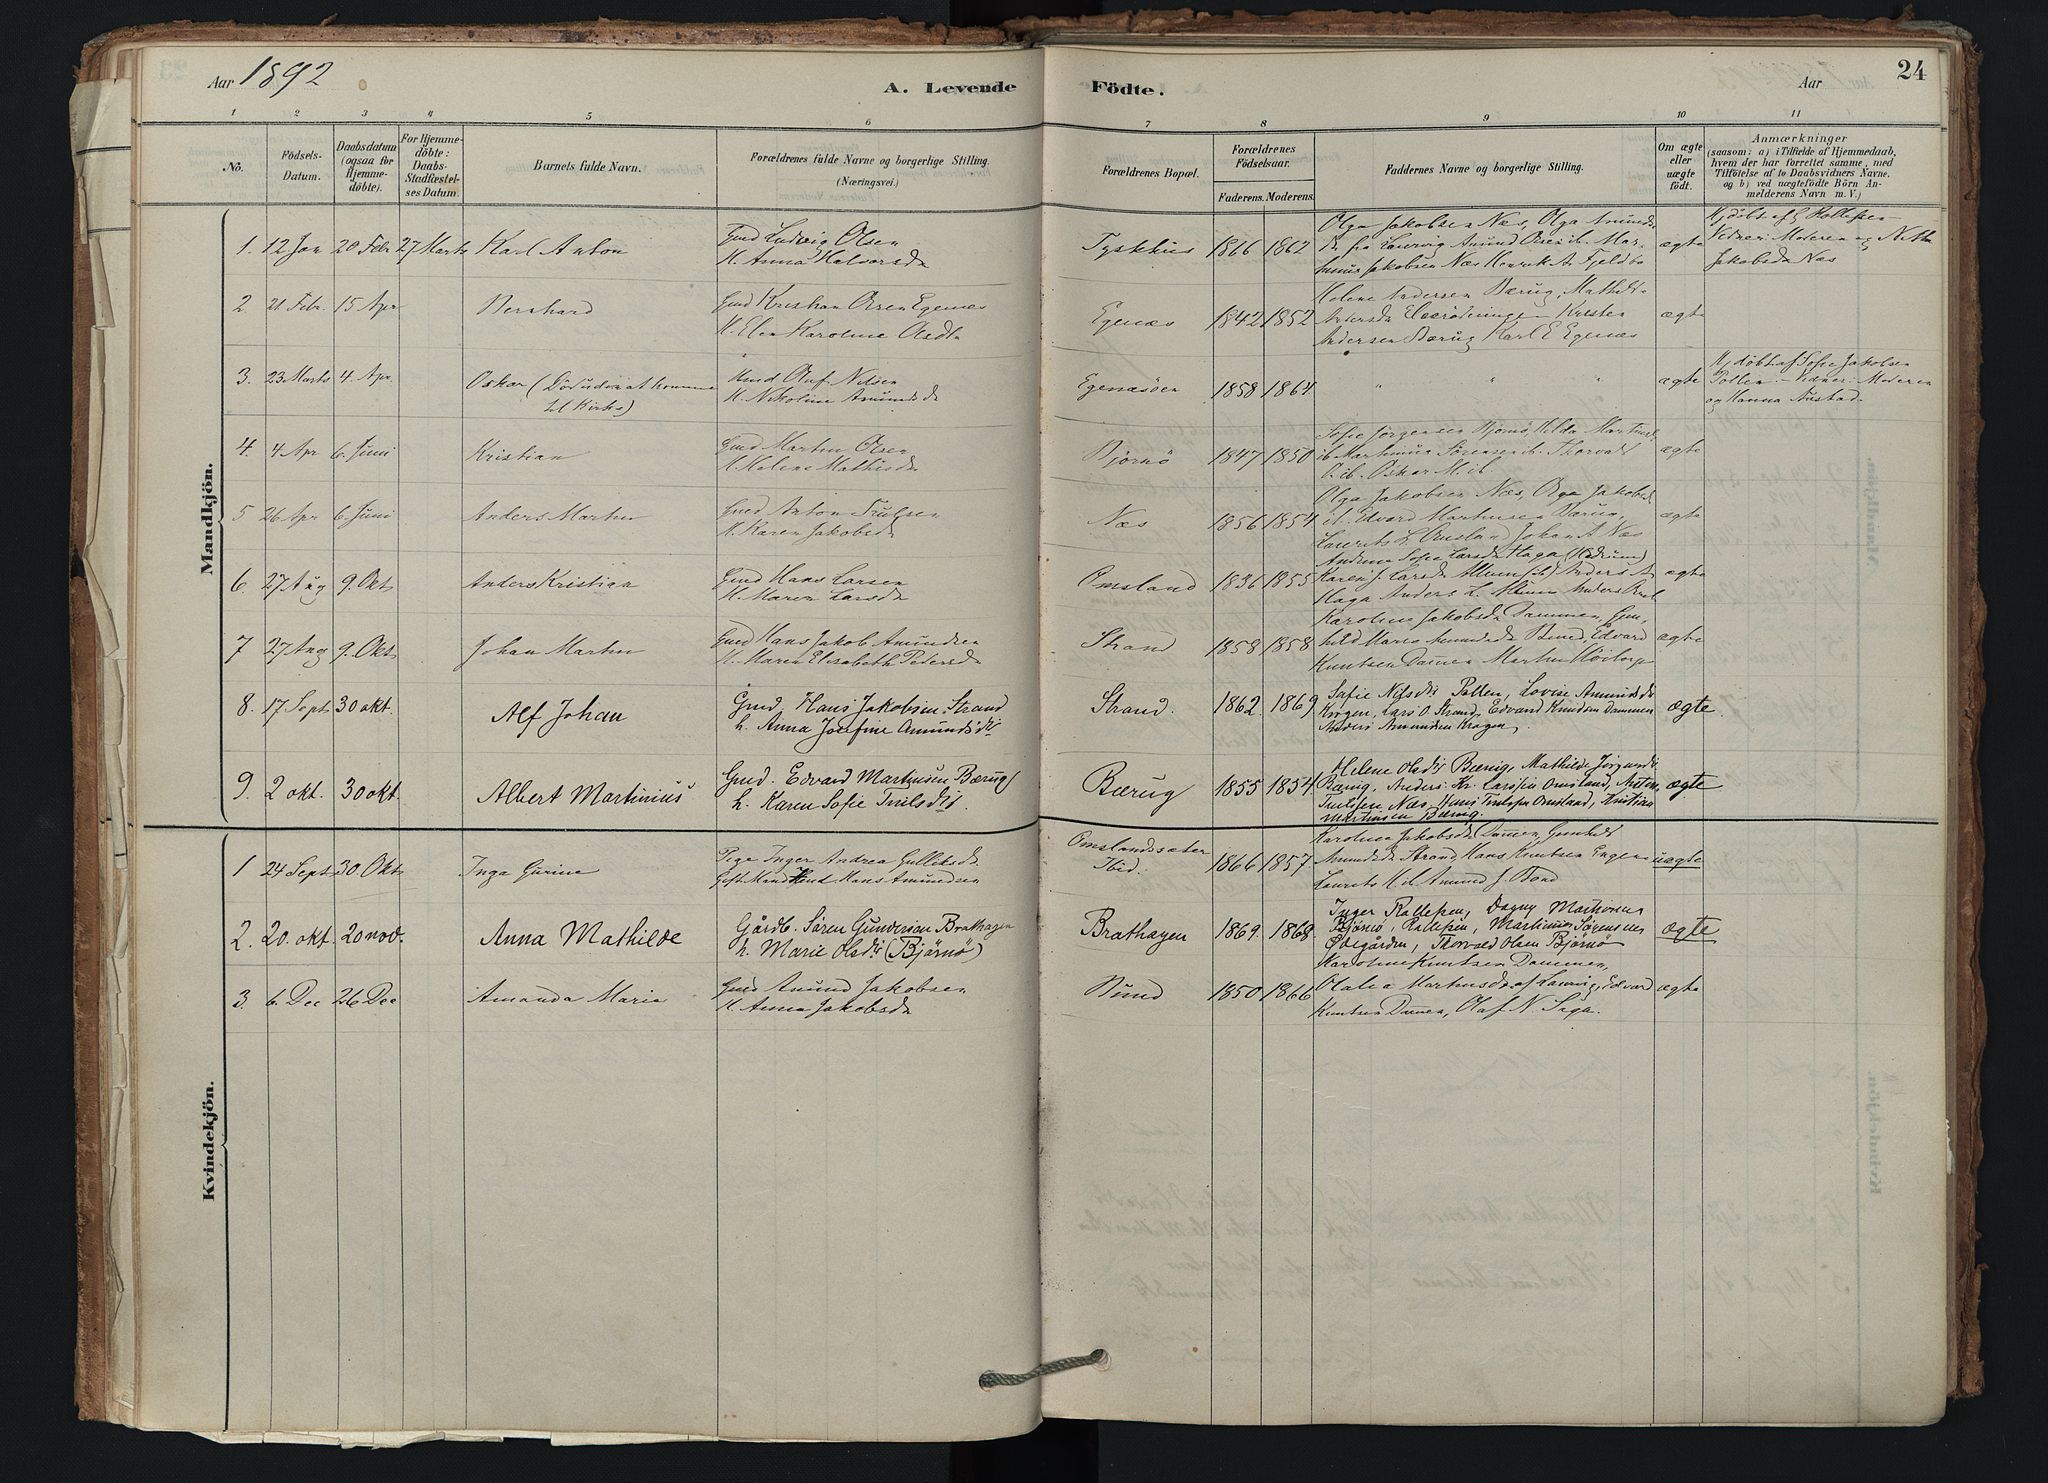 Aar 1892
A. Levende Födte.
Aar
24
1 2 3 4 5 6 7 8 9 10 11
No.
Födsels-Datum.
Daabsdatum (ogsaa for Hjemme-döbte).
For Hjemme-döbte: Daabs-Stadfæstel-ses Datum.
Barnets fulde Navn.
Forældrenes fulde Navne og borgerlige Stilling. (Næringsvei.)
Forældrenes Bopæl.
Forældrenes Födselsaar.
Faderens. Moderens.
Faddernes Navne og borgerlige Stilling.
Om ægte eller uægte födt.
Anmærkninger
(saasom: a) i Tilfælde af Hjemmedaab,
hvem der har forrettet samme, med
Tilföielse af to Daabsvidners Navne,
og b) ved uægtefödte Börn An-
melderens Navn m. V.)
Mandkjön.
1. 12 Jan 28 Febr 27 Marts Karl Anton
Gmd Ludvig Olsen
H. Anna Halvorsd.
Tyskhus 1866 1862
Olga Jakobsen Næs, Olga Amunds
Jakobsen Næs Henrik A Fjeldbo
ægte
Jakobsd Næs
2 21 Febr. 15 Apr Bernhard
Gmd Kristian Olsen Egenæs
H. Elen Karoline Olsdtr
Egenæs 1842 1852
Helene Andersen Bærug, Mathilde
Andersen Bærug Karl E Egenæs
ægte
3. 23 Marts 4. Apr. Oskar (Död uden at komme
til Kirke)
Gmd Olaf Nilsen
H. Nikoline Amundsd
Egenæsöen 1858 1864
" " "
ægte
Hj.döbt af Sofie Jakobsen
Pollen. Vidner: Moderen
og Hanna
4. 4 Apr 6. Juni Kristian
Gmd Martin Olsen
H. Helene Mathisd
Bjørnø 1847 1850
Sofie Jörgensen Bjørnø, Hilda
ib. Martinius Sörensen ib. Thorvald
O. ib. Oskar M. ib
ægte
5 26 Apr 6. Juni Anders Martin
Gmd Anton Trulsen
H. Karen Jakobsd
Næs 1856 1854
Olga Jakobsen Næs, Olga Jakobsd
ib. Edvard Martinsen Bærug,
Laurits L Omsland Johan A Næs
ægte
6. 27 Aug 9. Okt Anders Kristian
Gmd Hans Larsen
H. Maren Larsd
Omsland 1836 1855
Andrine Sofie Larsd Haga (Hedrum)
Karen J. Larsd (ib) Anders A
Haga Anders L.
ægte
7 27 Aug 9. Okt Johan Martin
Gmd Hans Jakob Amundsen
H. Maren Elisabeth Petersd
Strand 1858 1858
Karoline Jakobsd Dammen, Gun-
hild Marie Amundsd Bund, Edvard
Knutsen Damen Martin
ægte
8. 17 Sept 30 okt. Alf Johan
Gmd. Hans Jakobsen Strand
h. Anna Josefine Amundsdtr
Strand. 1862. 1869
Sofie Nilsdtr Pollen, Lovise Amundsdtr
Krogen, Lars O. Strand, Edvard Knudsen Dammen
Anders Amundsen Krogen.
ægte
9. 2 okt. 30 okt. Albert Martinius
Gmd. Edvard Martinsen Bærug
h. Karen Sofie Trulsdtr
Bærug 1855 1854
Helene Olsdtr Bærug, Mathilde Jørgensdtr
Bærug, Anders Kr. Larssen Omsland, Anton
Trulssen Næs, Hans Trulssen Omsland, Kristian
Martinsen Bærug.
ægte
Kvindekjön.
1 24 Sept 30 Okt Inga Gurine
Pige Inger Andrea Gulliksd.
Gift Mand Hans Amundsen
Omslandssæter
Ibid. 1866 1857
Karoline Jakobsd Damen, Gunhild
Amundsd Strand, Hans Knutsen Engene
Laurits Amund J. Bond
uægte
2. 20. okt. 20 nov. Anna Mathilde
Gårdb. Søren Gundersen Brathagen
h. Marie Olsdtr (Bjørnø)
Brathagen 1869. 1868
Inger Rallessen, Dagny Mathisen
Bjørnø, Rallessen, Martinius Sørensen
Øvegården, Thorvald Olsen Bjørnø
ægte
3. 6. Dec 26 Dec Amanda Marie
Gmd Amund Jakobsen
H Anna Jakobsd
Bund 1850 1866
Karoline Knutsen Dammen,
Olalia Martinsd af Laurvig, Edvard
Knutsen Damen, Olaf N.
ægte